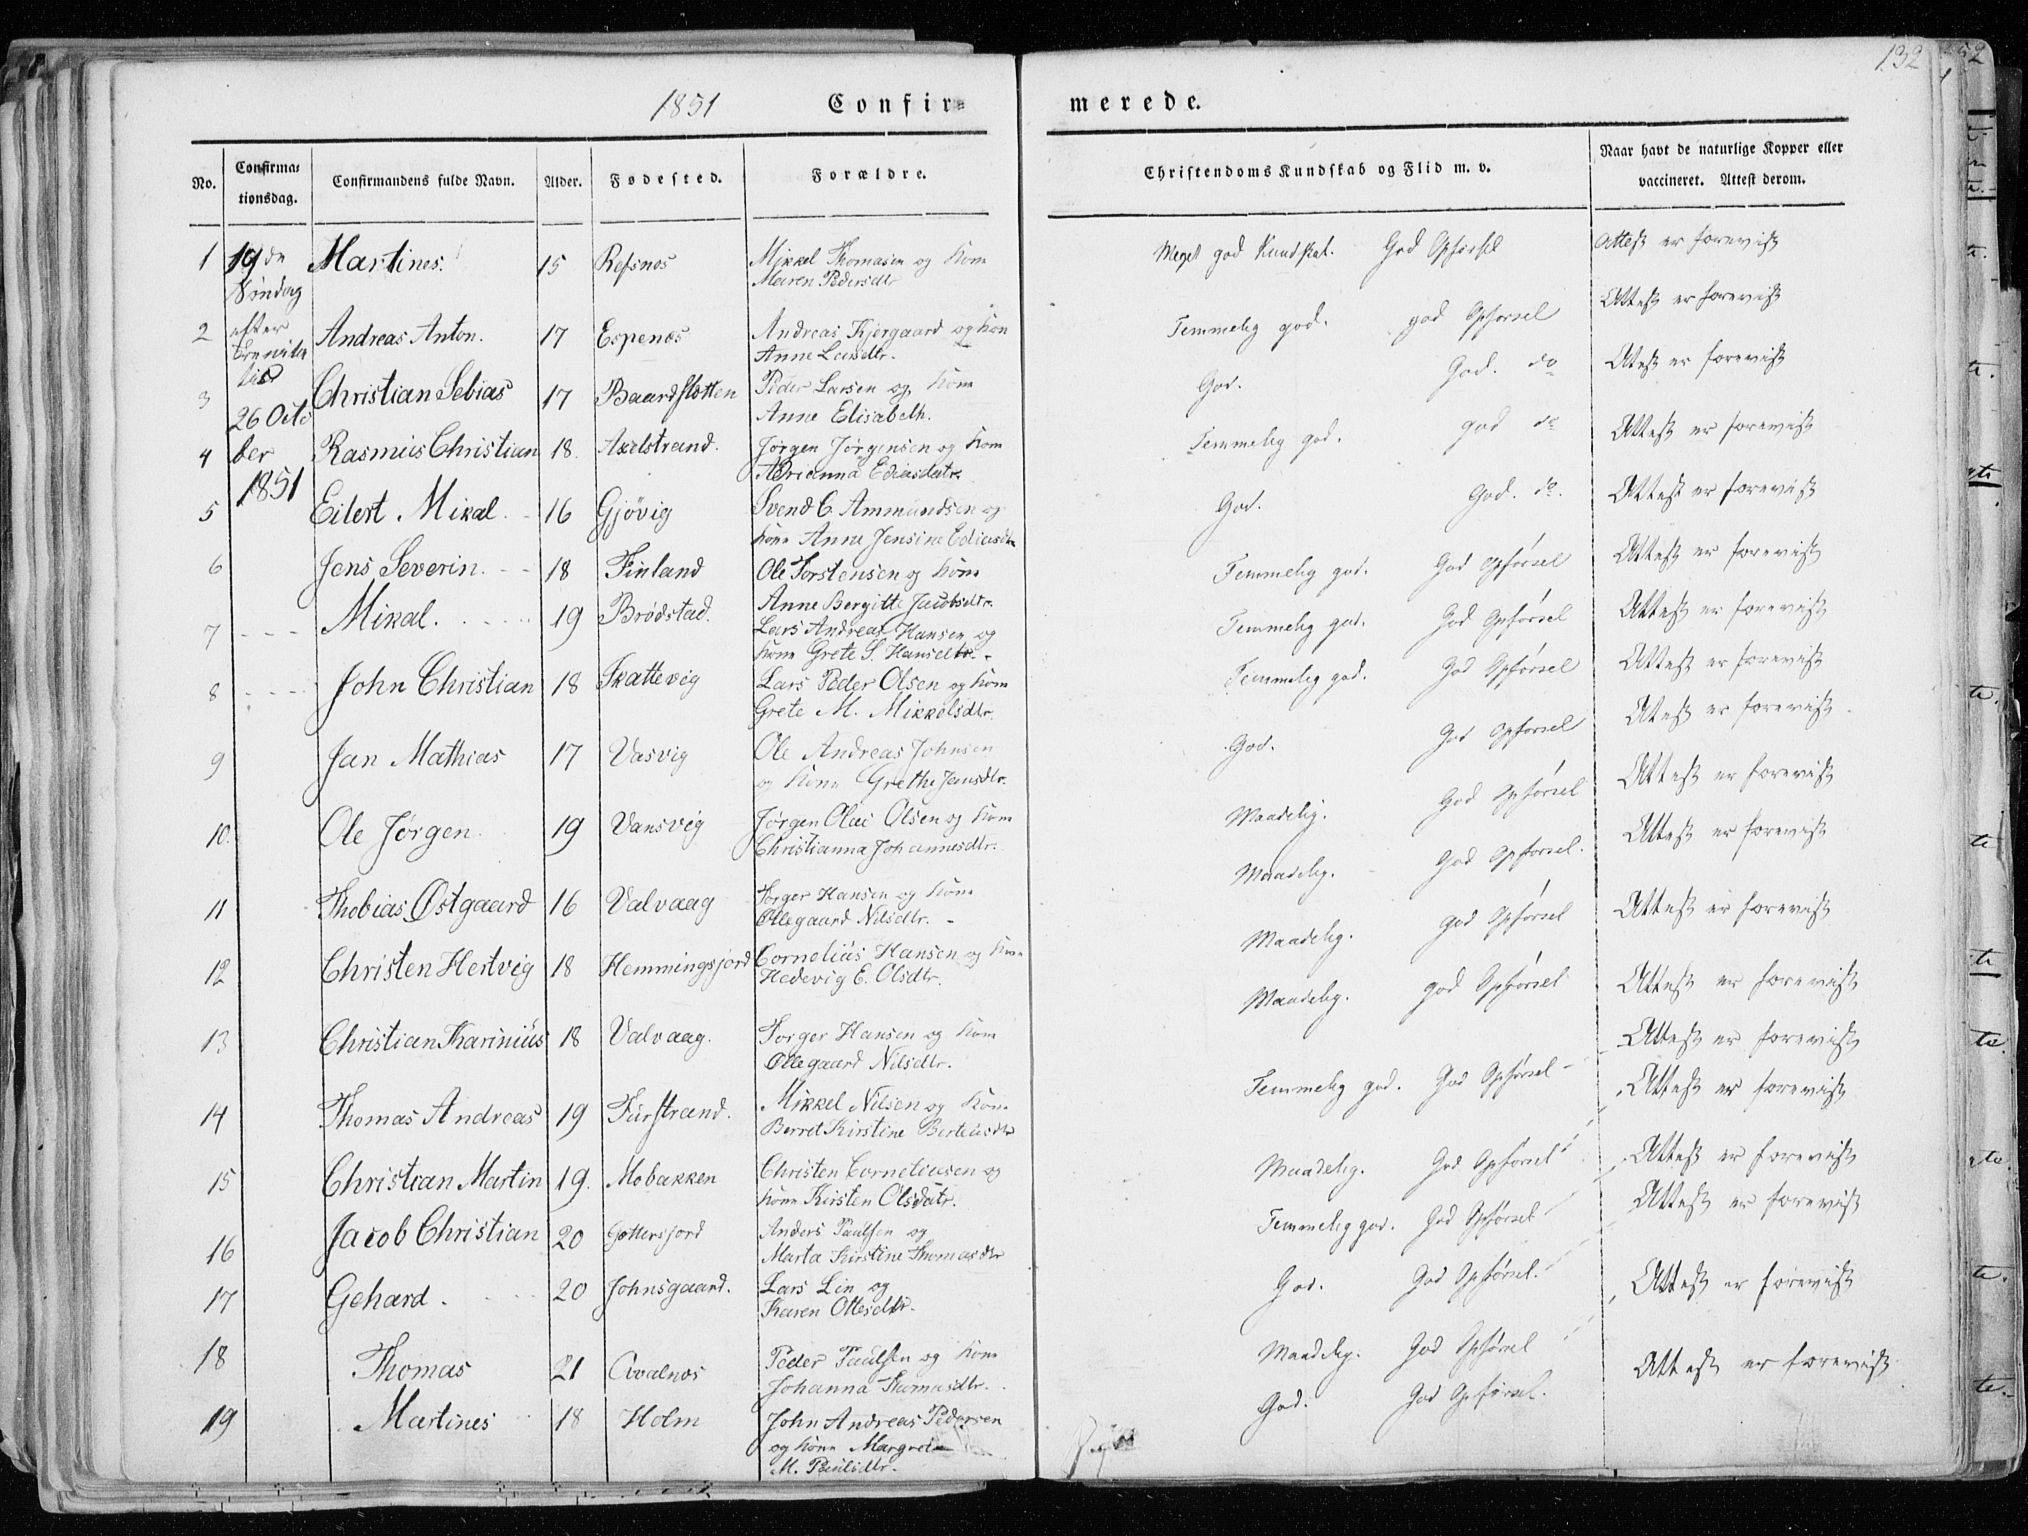 1851 Confir= merede. 132
No. Confirma=tionsdag. Confirmandens fulde Navn. Alder. Fødested. Forældre. Christendoms Kundskab og Flid m. v. Naar havt de naturlige Kopper eller vaccineret. Attest derom.
1 19de Søndag Martines. 15 Refsnes Mikkel Thomasen og Kone Maren Pedersdtr Meget god Kundskab. God Opførsel Attest er forevist
2 efter Trinitatis Andreas Anton. 17 Espenes Andreas Kjergaard og Kon Anne Larsdtr. Temmelig god. god Opførsel Attest er forevist
3 26 Octo Christian Sebias 17 Baardslotten Peder Larsen og Kone Anne Elisabeth. God. God. do Attest er forevist
4 ber Rasmus Christian 18. Axelstrand. Jørgen Jørgensen og Kone Adrianna Ediasdatr. Temmelig god. god do Attest er forevist
5 1851 Eilert Mikal. 16 Gjøvig Svend C. Ammundsen og Kone Anne Jensine Ediasdtr God. God. do. Attest er forevist
6 Jens Severin. 18 Finland Ole Torstensen og Kone Anne Bergitte Jacobsdtr. Temmelig god. God Opførsel Attest er forevist
7 Mikal. 19 Brødstad. Lars Andreas Hansen og Kone Grete S. Hansdtr. Temmelig god. God Opførsel Attest er forevist
8 John Christian 18 Skattevig Lars Peder Olsen og Kone Grete M. Mikkelsdtr. Temmelig god. God Opførsel Attest er forevist
9 Jan Mathias 17 Vasvig Ole Andreas Johnsen og Kone Grethe Jensdtr. God. God Opførsel Attest er forevist
10. Ole Jørgen. 19 Vansvig Jørgen Olai Olsen og Kone Christianna Johannesdtr. Maadelig. God Opførsel Attest er forevist
11 Thobias Østgaard 16 Valvaag Torger Hansen og Kone Ollegaard Nilsdtr. Maadelig. God Opførsel. Attest er forevist
12 Christen Hertvig 18 Hemmingsjord Cornelius Hansen og Kone Hedevig E. Olsdtr. Maadelig. God Opførsel Attest er forevist
13 Christian Karinius 18 Valvaag. Torger Hansen og Kone Ollegaard Nilsdtr. Maadelig. god Opførsel Attest er forevist
14 Thomas Andreas 19 Furstrand. Mikkel Nilsen og Kone Berret Kirstine Berteusdtr Temmelig god. God Opførsel Attest er forevist
15 Christian Martin 19. Mobakken Christen Corneliusen og Kone Kirsten Olsdatr. Maadelig. God Opførsel Attest er forevist
16 Jacob Christian 20 Gottersjord Anders Paulsen og Marta Kirstine Thomasdtr Temmelig god. God Opførsel Attest er forevist
17 Gehard. 20 Johnsgaard. Lars Lin og Karen Ottesdtr. God. God Opførsel. Attest er forevist
18 Thomas 21 Qvalnes Peder Paulsen og Kone Johanna Thomasdtr. Maadelig. God Opførsel Attest er forevist
19 Martines 18 Holm John Andreas Pedersen og Kone Margrete M. Paulsdtr. God. God Opførsel. Attest er forevist